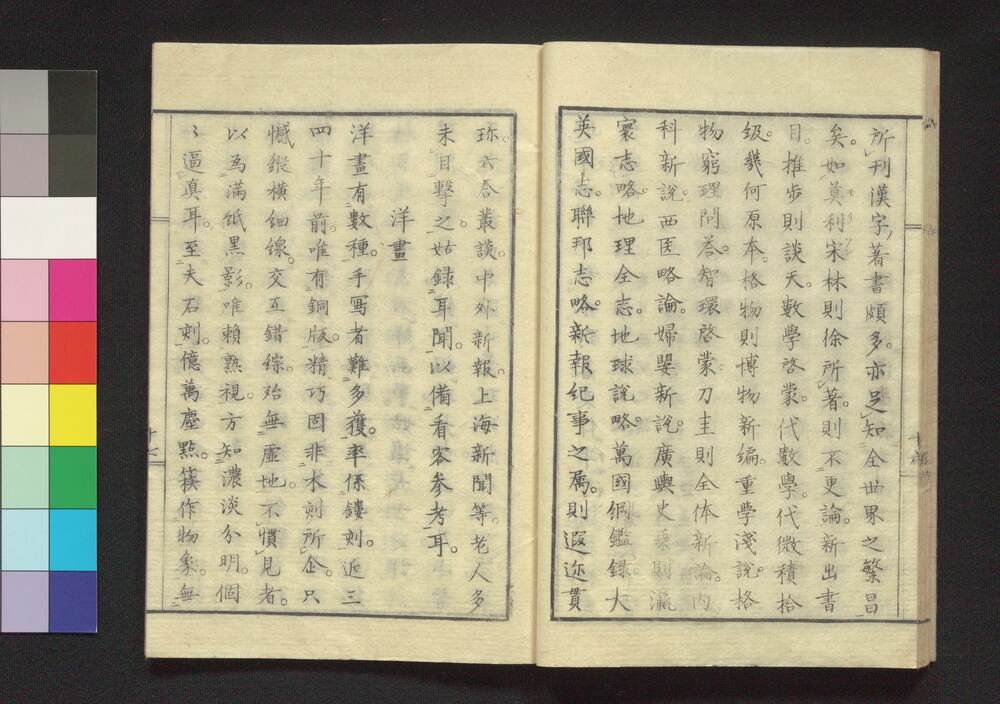 所刊漢字著書頗多。亦足知全世界之繁昌
矣。如莫利宋林則徐所著。則不更論。新出書
目。推步則談天。數學啓蒙。代數學。代微積拾
級。幾何原本。格物則博物新編。重學淺說。格
物窮理問答。智環啓蒙。刀圭則全体新論。内
科新說。西医略論。婦嬰新說。廣輿史 則瀛
寰志略。地理全志。地球說略。萬國綱鑑録。大
英國志。聯邦志略。新報紀事之属。則遐迩貫
珎。六合叢談。中外新報。上海新聞等。老人多
未目擊之。姑録耳聞。以備看客参考耳。
洋畫
洋畫有數種。手寫者難多獲。率係鏤刻。近三
四十年前。唯有銅版。精巧固非木刻所企。只
憾縱横細線。交互錯綜。殆無虚地。不慣見者。
以為滿紙黒影。唯頼熟視。方知濃淡分明。個
々逼真耳。至夫石刻。億萬塵點。簇作物象。無